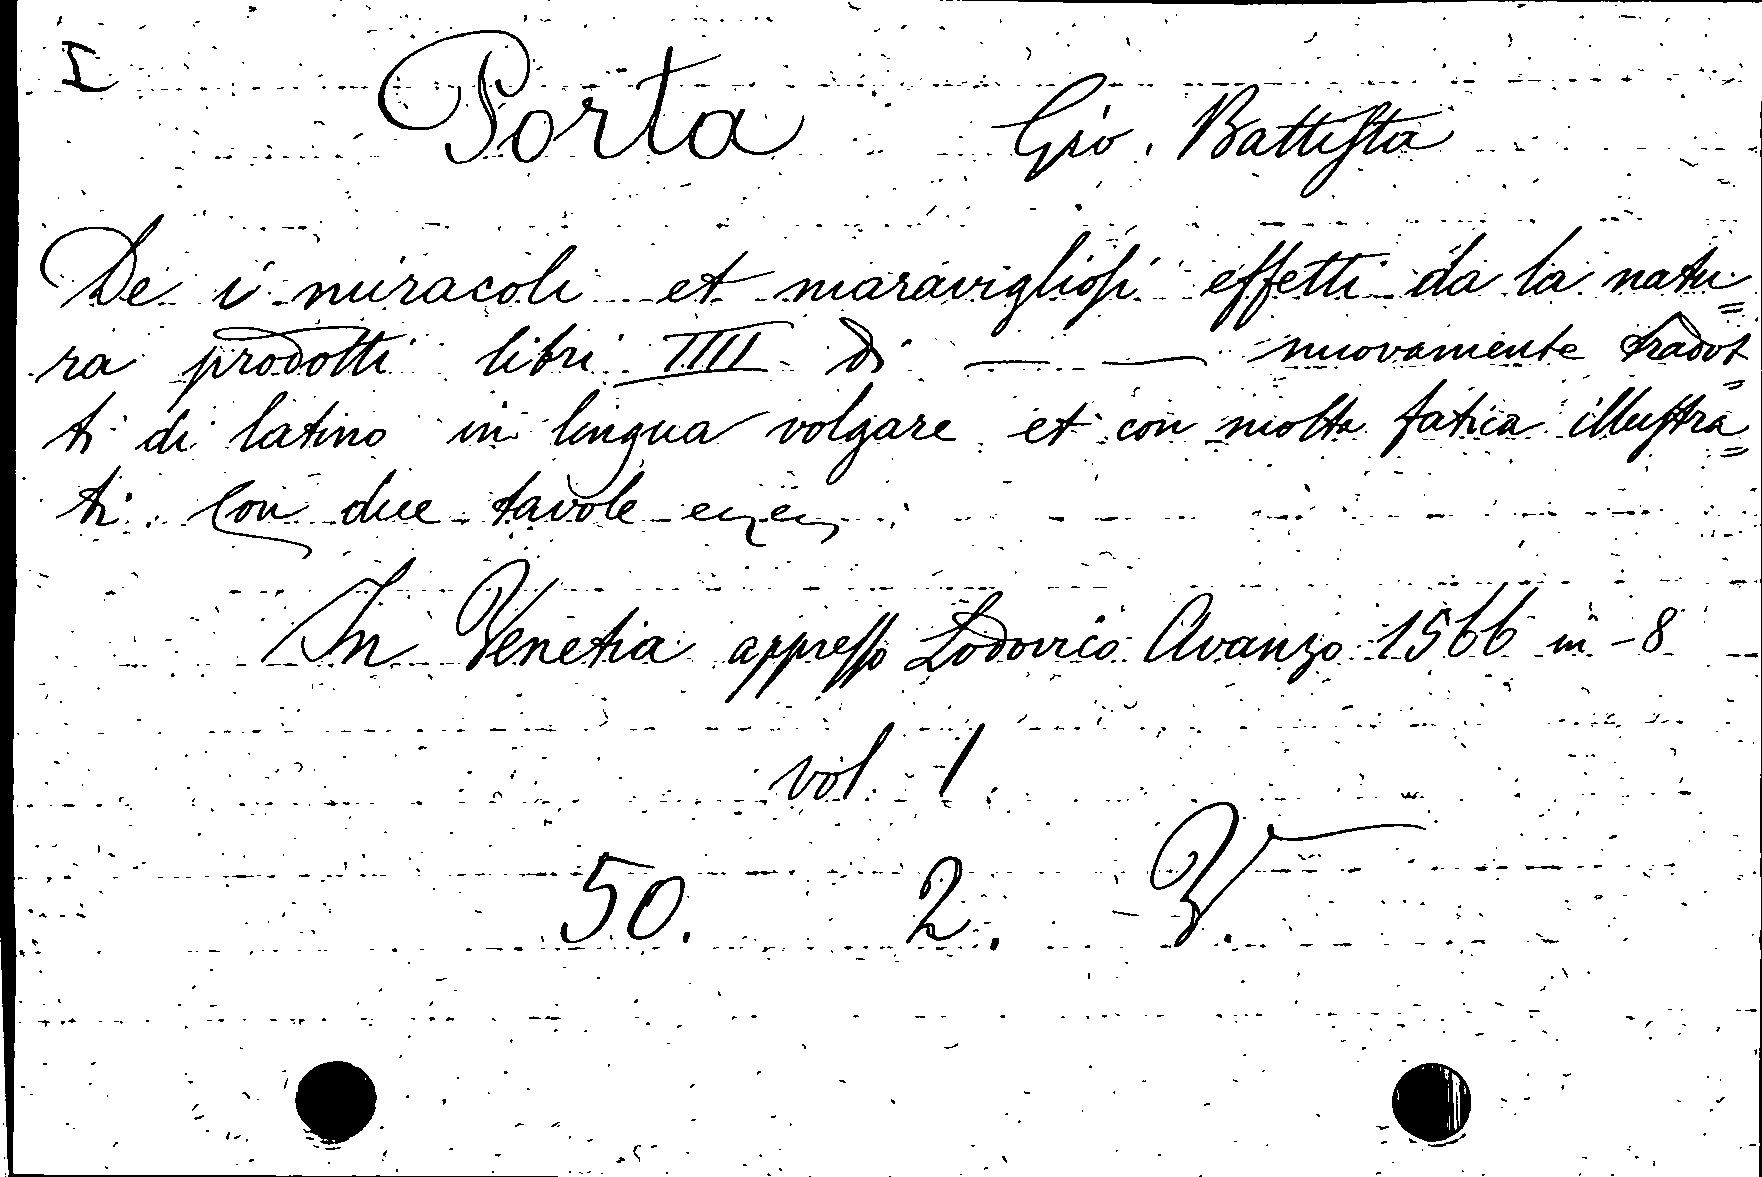 I
Porta Gio. Battista
De i miracoli et maravigliosi effetti da la natu=
ra prodotti libri IIII di — — nuovamente tradot=
ti di latino in lingua volgare et con molta fatica illustra=
ti. Con due tavole
In Venetia appresso Lodovico Avanzo 1566 in-8
vol. 1
50. 2.